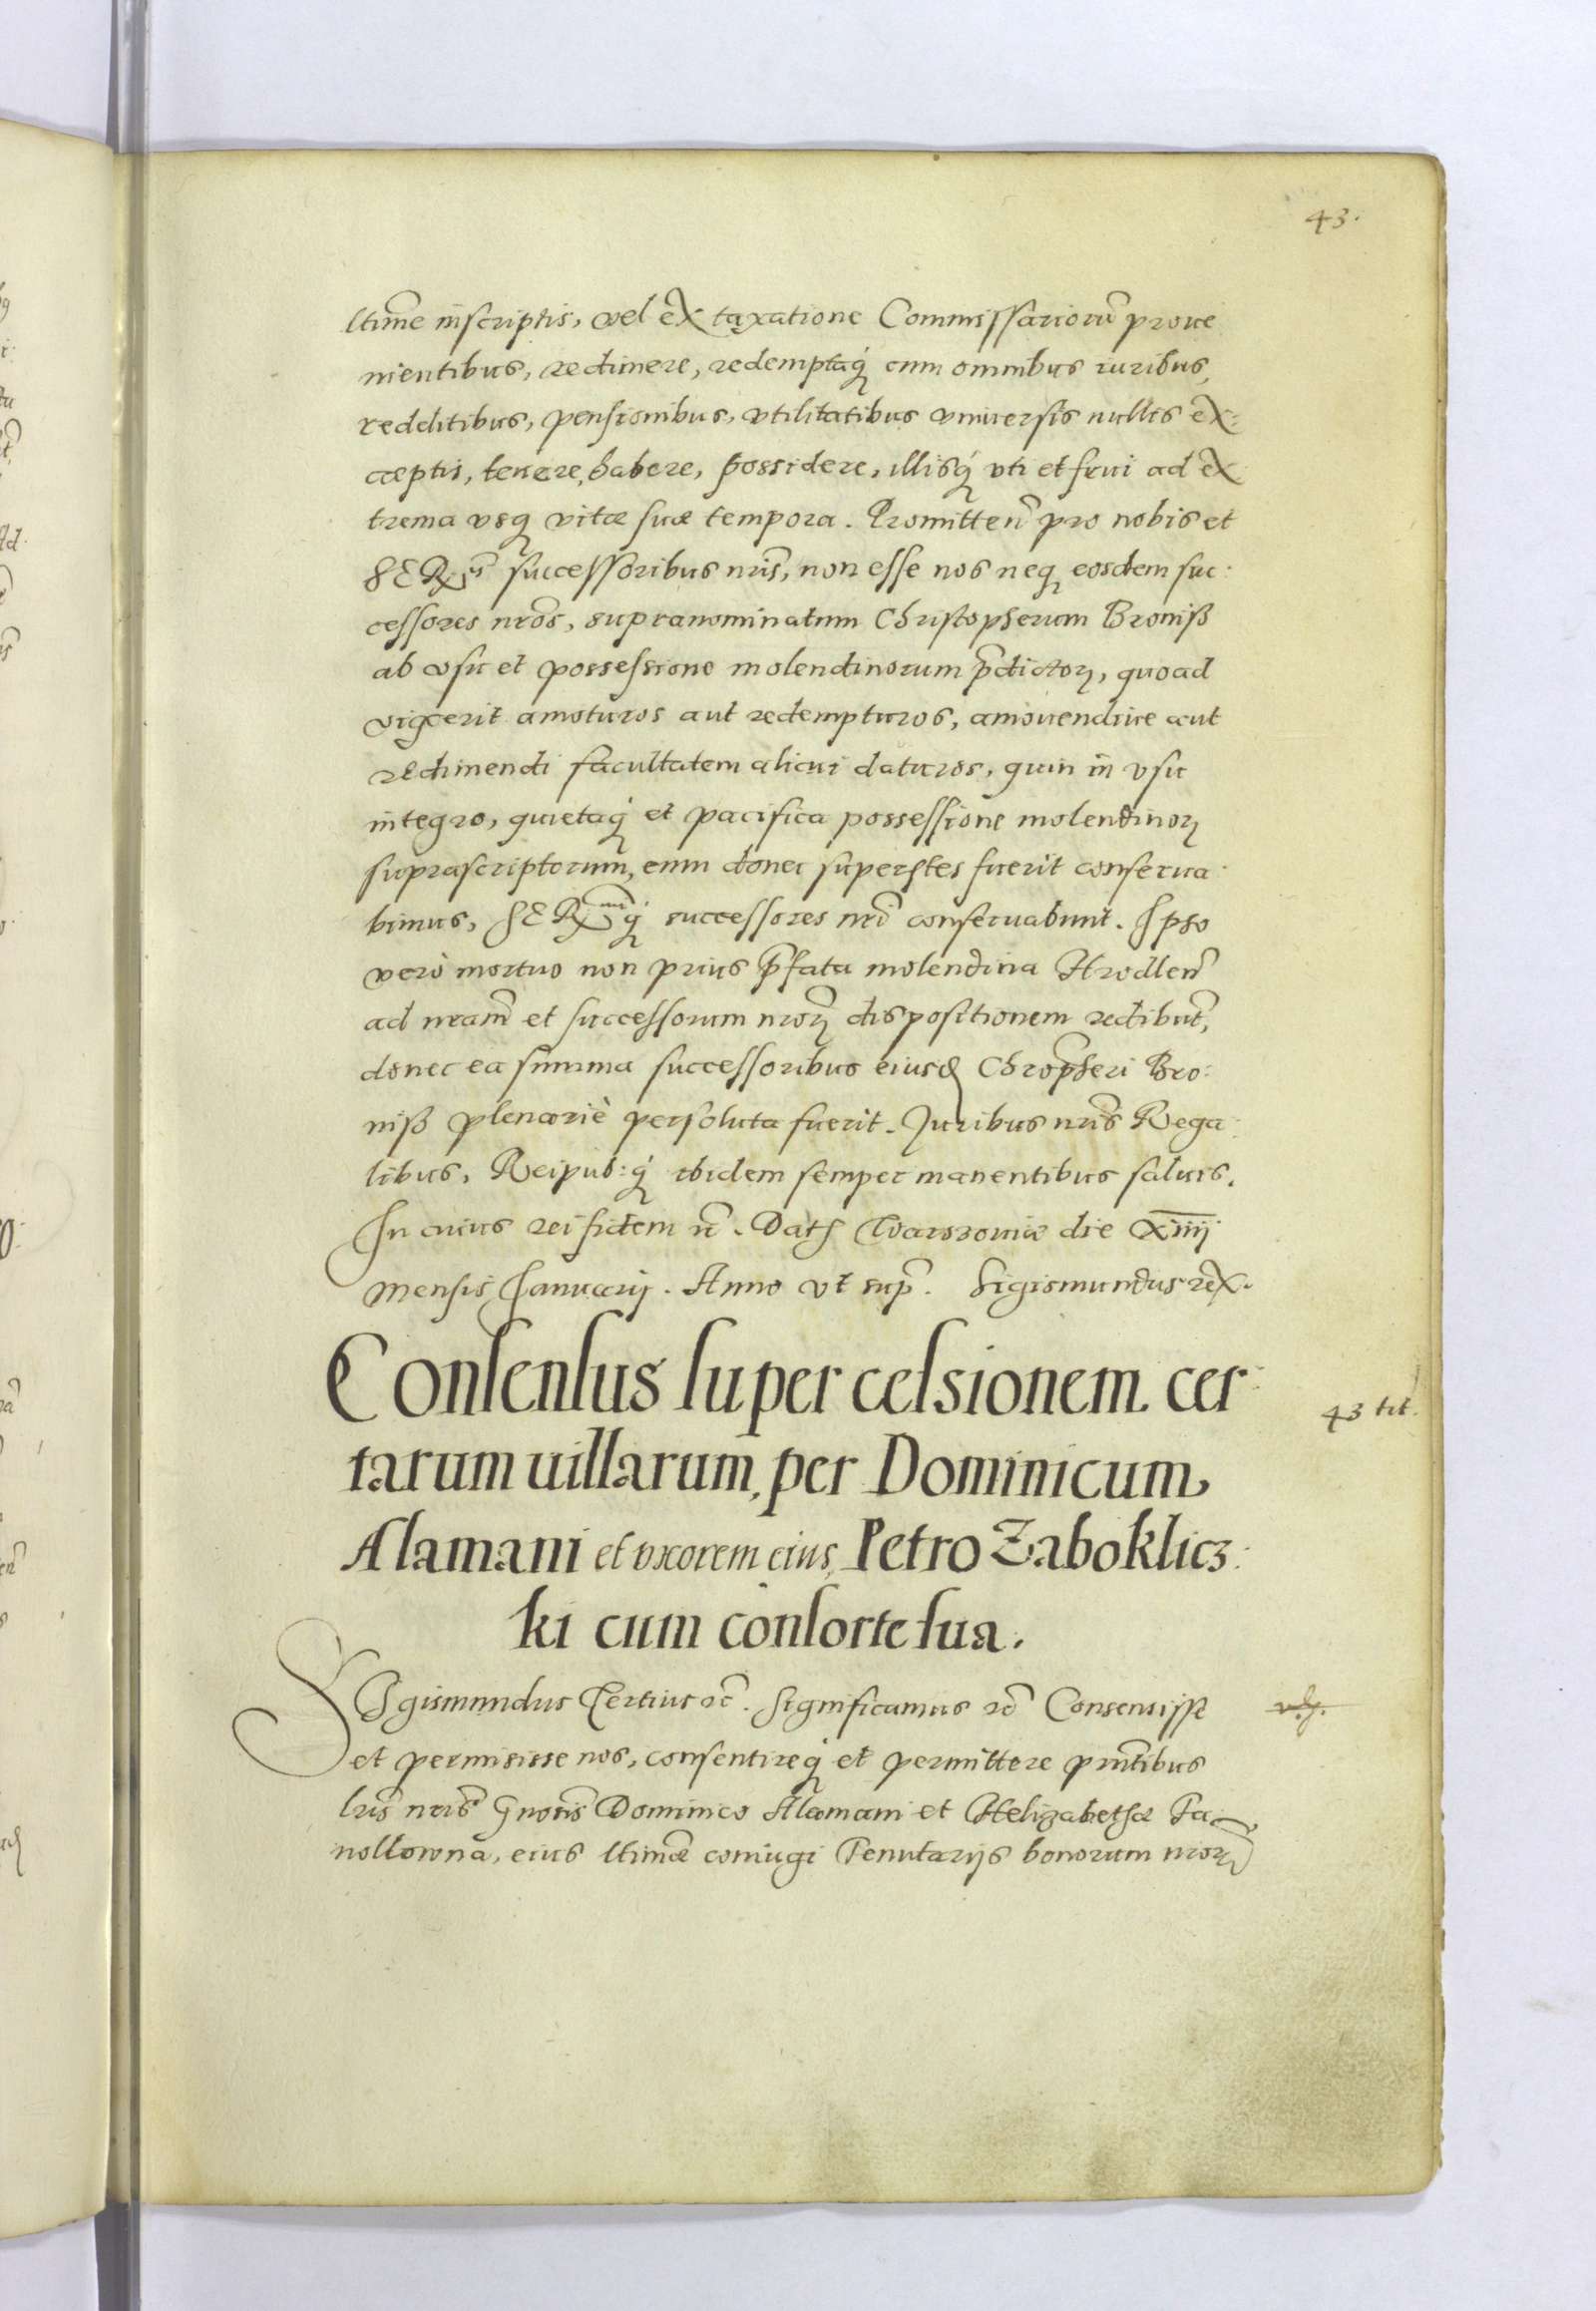 43.
ltime inscriptis, vel ex taxatione Commissariorū prove
nientibus, redimere, redemptaq́ cum omnibus iuribus,
redditibus, pensionibus, vtilitatibus vniuersis nullis ex:
cæptis, tenere, habere, possidere, illisq́ vti et frui ad ex
trema vsq vitæ suæ tempora. Promitten̄ pro nobis et
SERmis successoribus nrīs, non esse nos neq eosdem suc:
cessores nrōs, supranominatum Christopherum Broniß
ab vsu et possessione molendinorum p̄dictoꝝ, quoad
vixerit amoturos aut redempturos, amouendiue aut
redimendi facultatem alicui daturos, quin in vsu
integro, quietaq́ et pacifica possessione molendinoꝝ
suprascriptorum, eum donec superstes fuerit conserua
bimus, SERmiq́ successores nrī conseruabunt. Ipso
verò mortuo non prius p̄fata molendina Hrodlen̄
ad nrām et successorum nrōꝝ dispositionem redibut̄,
donec ea summa successoribus eiusd Chrop̄heri Bro:
niß plenariè persoluta fuerit. Iuribus nrīs Rega:
libus, Reipub:q́ ibidem semper manentibus saluis.
In cuius rei fidem ꝛc̄. Datꝭ Warszouiæ die xiiij
Mensis Januarij. Anno vt sup̄. Sigismundus rex.
Consensus super cessionem cer:
tarum uillarum, per Dominicum
Alamani et vxorem eius, Petro Zaboklicz:
ki cum consorte sua.
43 tit.
Sigismundus Tertius ꝛc̄. Significamus ꝛc̄ Consensisse
et permisisse nos, consentireq́ et permittere pn̄tibus
lrīs nrīs Gnosis Dominico Alamani et Helizabethæ Pa
nollowna, eius ltimæ coniugi Tenutarijs bonorum nrorū